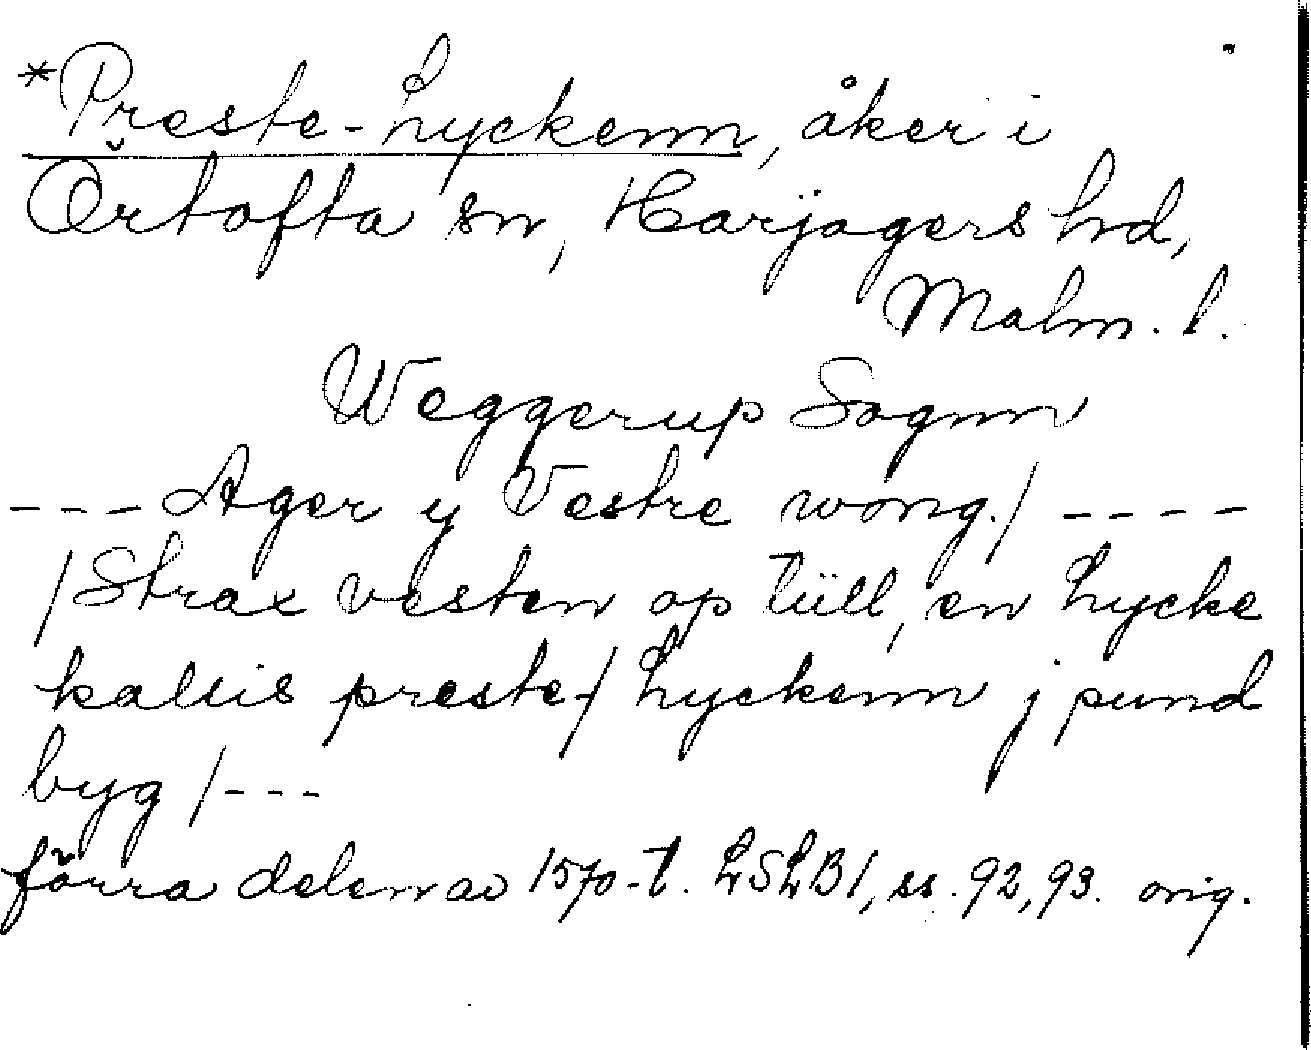 *Preste-Lyckenn, åker i
Örtofta sn, Harjagers hd,
Malm. l.
Weggerup Sognn
---Ager y Vestre wong./ ----
/Strax vesten op tüll, en Lycke
kallis preste-/ Lyckenn j pund
byg /---
förra delen av 1570-t. LSLB1, ss. 92, 93. orig.